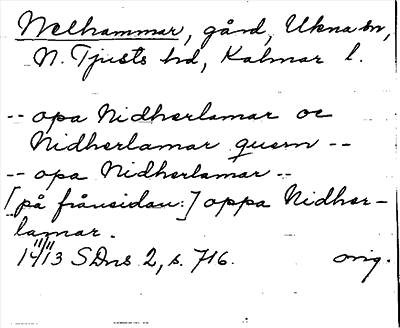 Nelhammar, gård, Ukna sn,
N. Tjusts hd, Kalmar l.
-- opa Nidherlamar oc
Nidherlamar quern --
-- opa Nidherlamar --
[på frånsidan:] oppa Nidher-
lamar.
14 11/11 13 SDns 2, s. 716. orig.